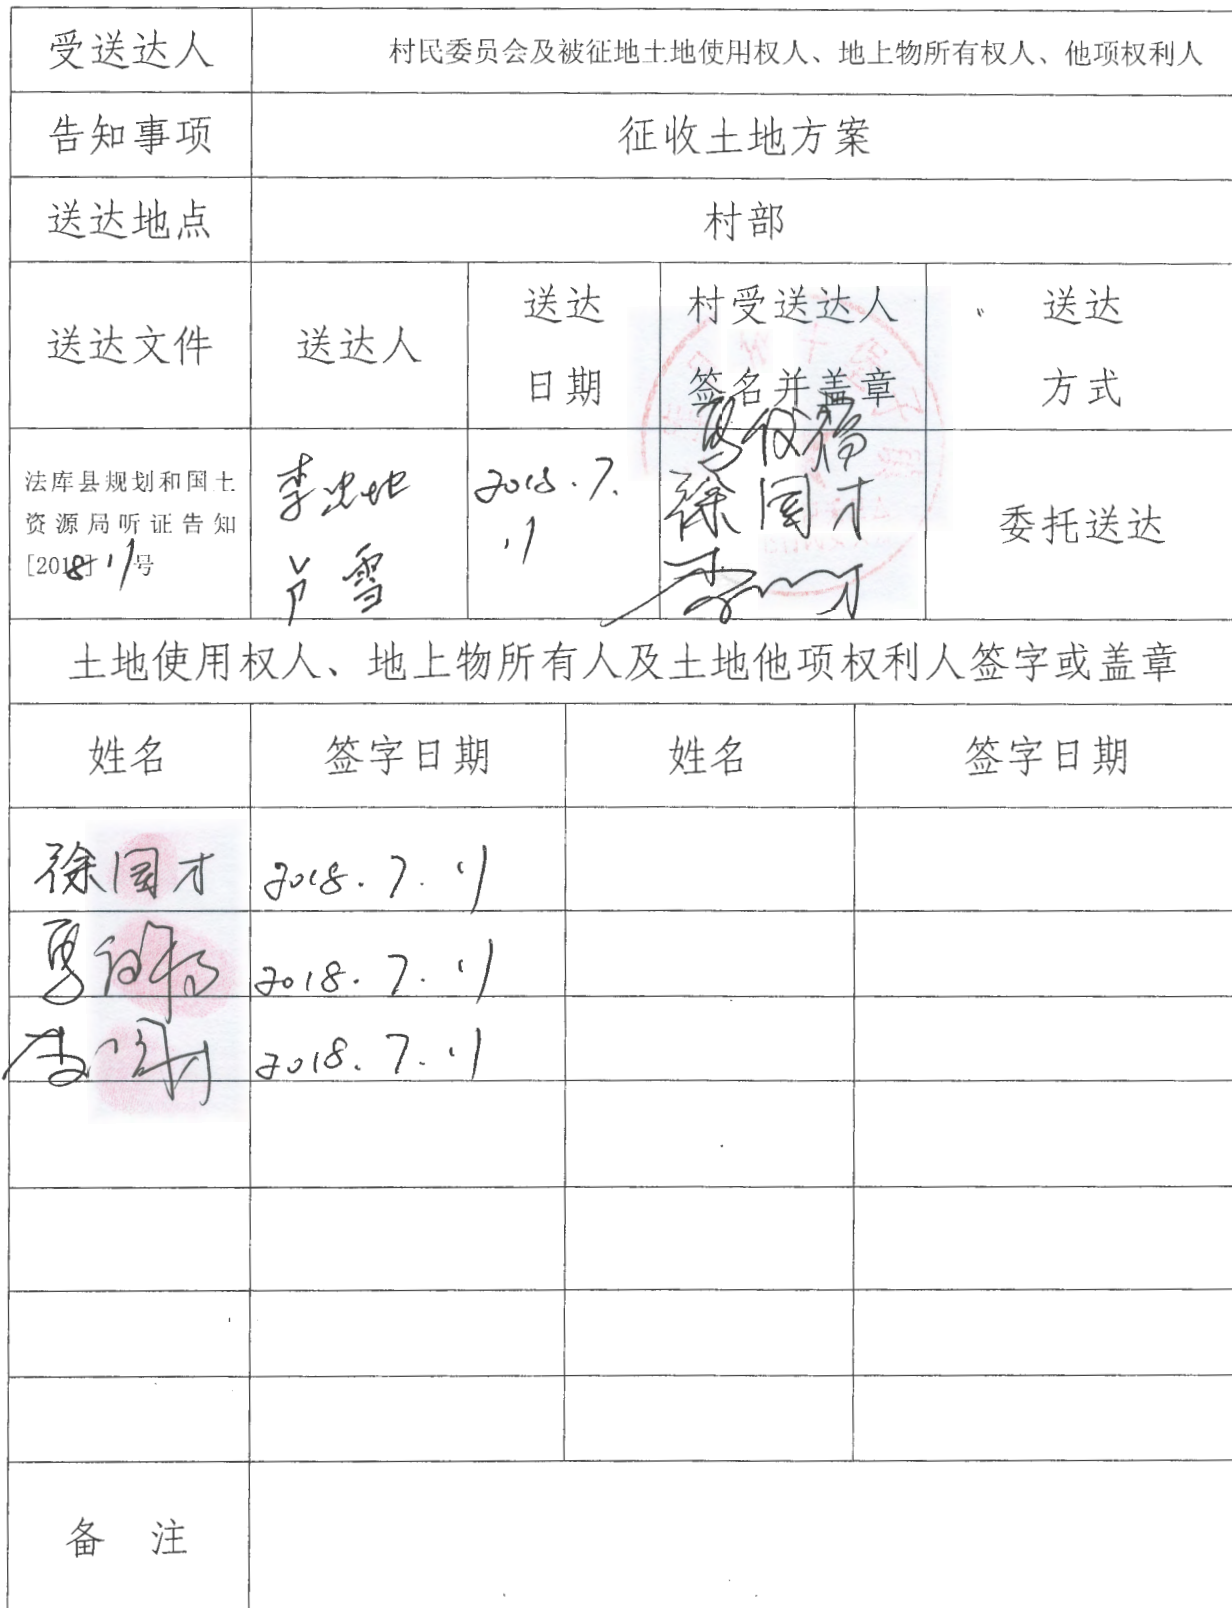 受送达人 村民委员会及被征地土地使用权人、地上物所有权人、他项权利人
告知事项 征收土地方案
送达地点 村部
送达文件 送达人 送达 日期 村受送达人 签名并盖章 送达 方式
法库县规划和国土
资源局听证告知
[2018] 11号
卢雪
2018.7.
11
徐国才
委托送达
土地使用权人、地上物所有人及土地他项权利人签字或盖章
姓名 签字日期 姓名 签字日期
徐国才 2018.7.11
2018.7.11
2018.7.11
备 注